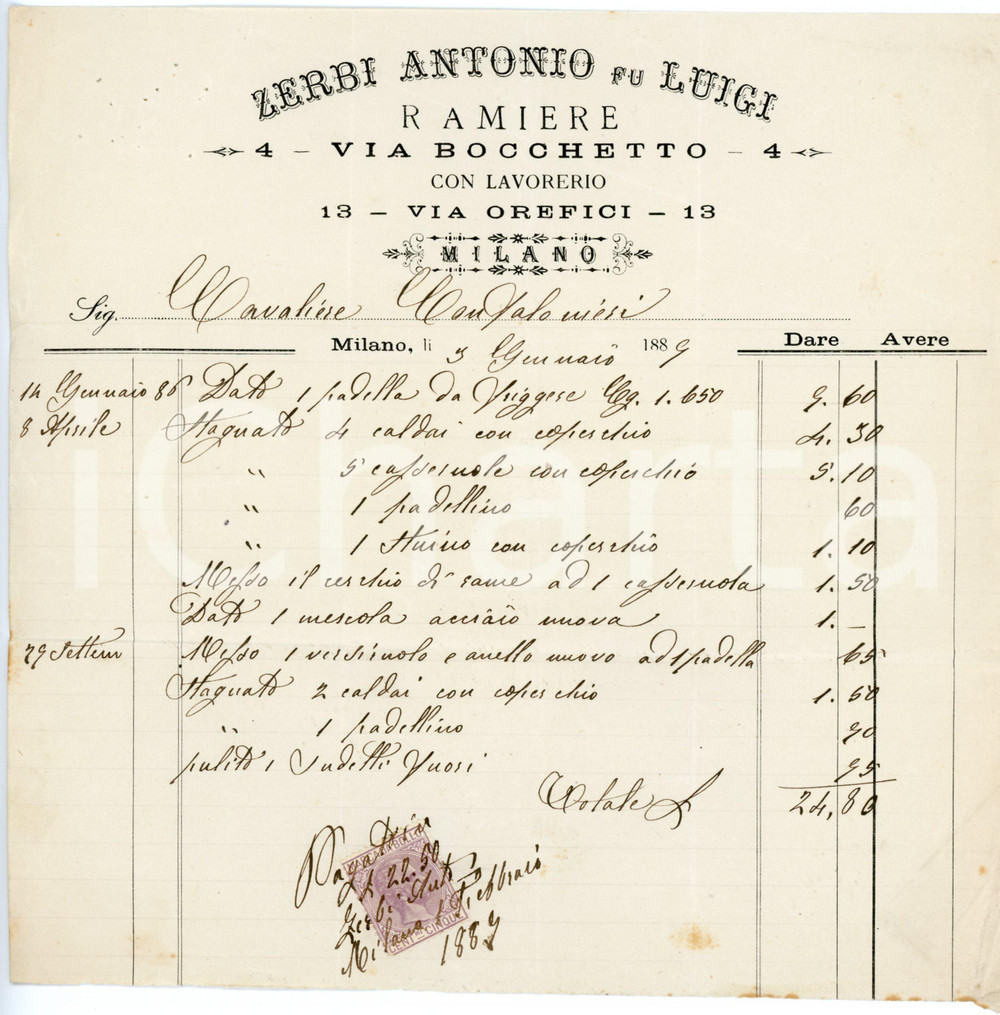 ZERBI ANTONIO FU LUIGI
RAMIERE
4 – VIA BOCCHETTO – 4
CON LAVORERIO
13 – VIA OREFICI – 13
MILANO
Sig. Cavaliere Confalonieri
Milano, li 3 Gennaio 1887 Dare Avere
14 Gennaio 86 Dato 1 padella da Friggere Cg. 1.650 9. 60
8 Aprile Stagnato 4 caldai con coperchio 4. 30
" 5 casseruole con coperchio 5. 10
" 1 padellino 60
" 1 con coperchio 1. 10
Messo il cerchio di rame ad 1 casseruola 1. 50
Dato 1 mescola acciaio nuova 1. —
29 Settem Messo 1 e anello nuovo ad 1 padella 65
Stagnato 2 caldai con coperchio 1. 50
" 1 padellino
pulito 1
Totale £ 24,80
Pagato
£ 22.50
Zerbi
Milano 1 Febbraio
1887
CENT. CINQUE
iCharta